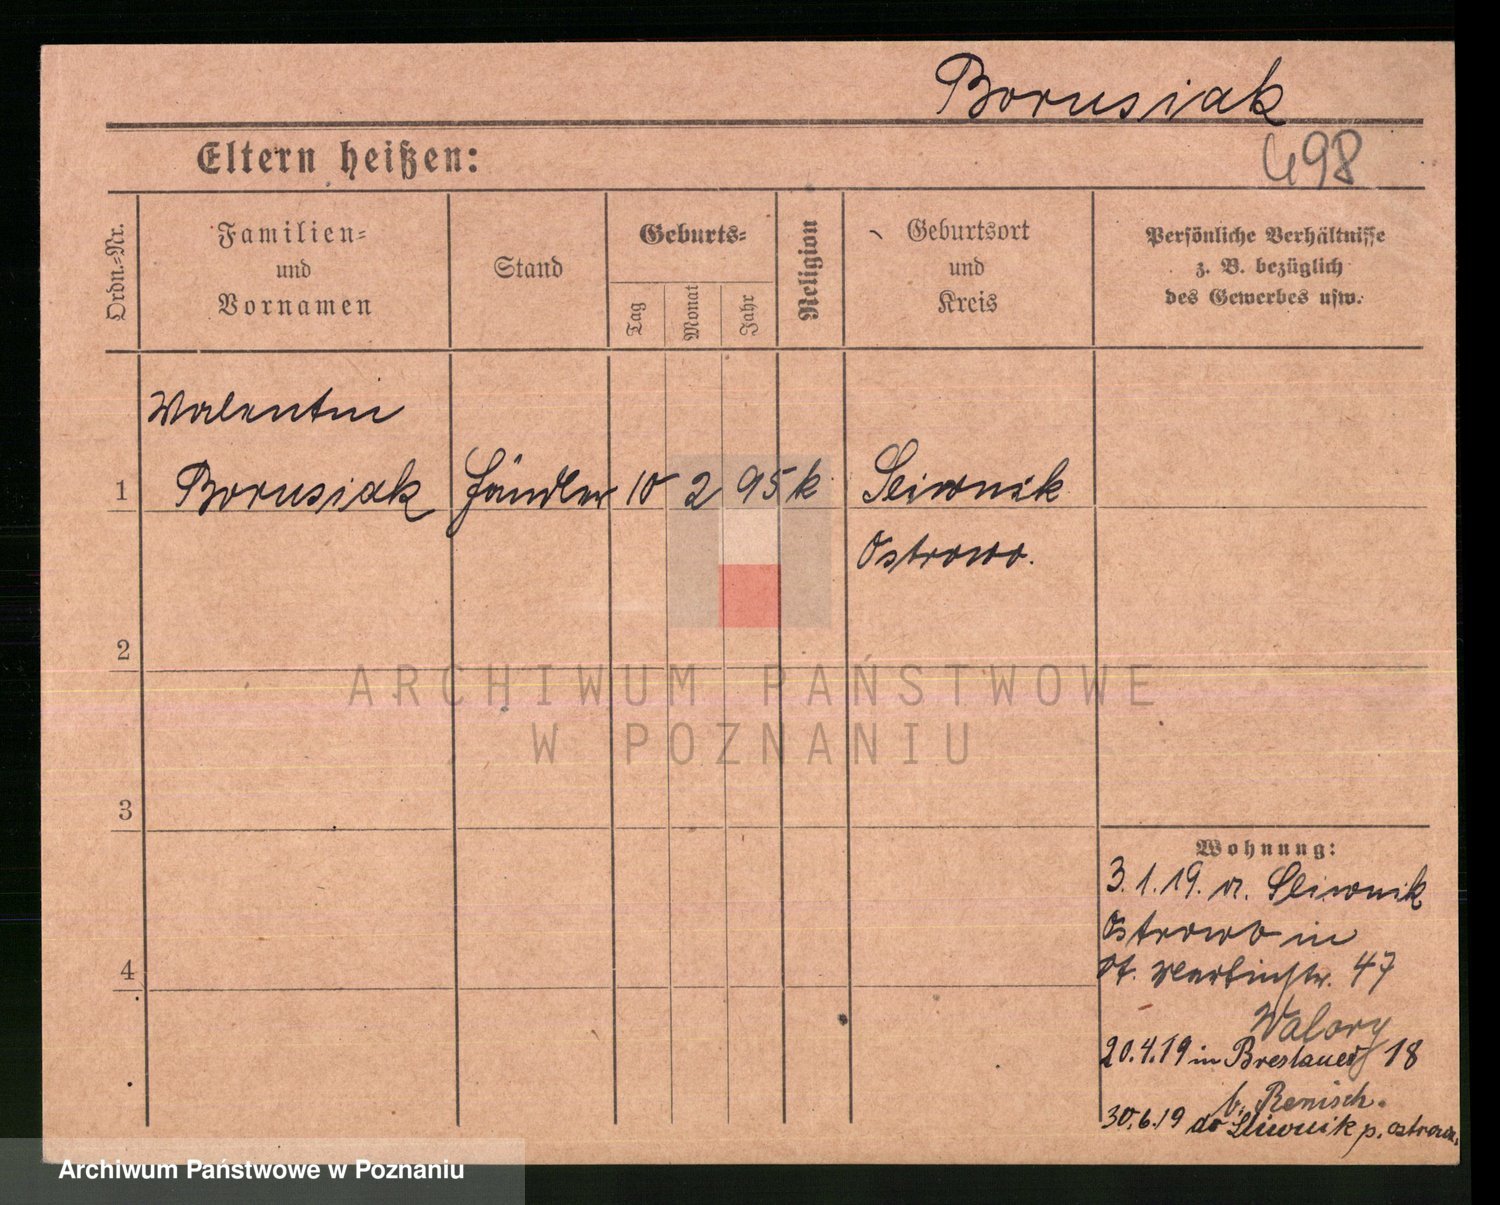 Borusiak
498
Eltern heißen:
Ordn.-Nr.
Familien-
und
Vornamen
Stand
Geburts-
Tag
Monat
Jahr
Religion
Geburtsort
und
Kreis
Persönliche Verhältnisse
z. B. bezüglich
des Gewerbes usw.
Valentin
1 Borusiak Händler 10 2 95 k Sliwnik
Ostrowo.
2
ARCHIWUM PAŃSTWOWE
W POZNANIU
3
Wohnung:
3.1.19. v. Sliwnik
Ostrowo in
St. Martinstr. 47
4
20.4.19 in Breslauer 18
b. Renisch.
30.6.19 do Sliwnik p. Ostrowo.
Archiwum Państwowe w Poznaniu